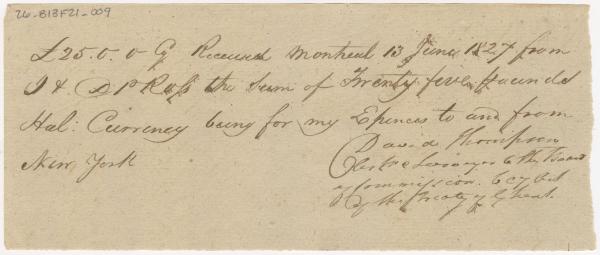 26-B13F21-009
£25.0.0 Cy Received Montreal 13 June 1827 from
J & D Ross the Sum of Twenty five Pounds
Hal: Currency being for my Expences to and from
New York
David Thompson
Surveyor to the Board
of Commission. 6 & 7
of the Treaty of Ghent.